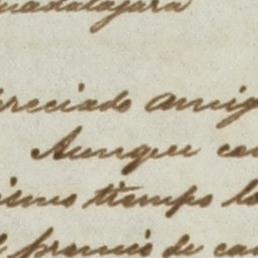 uadalajara
reciado amig
Aunque ca
ismo tiempo lo
l premio de ca